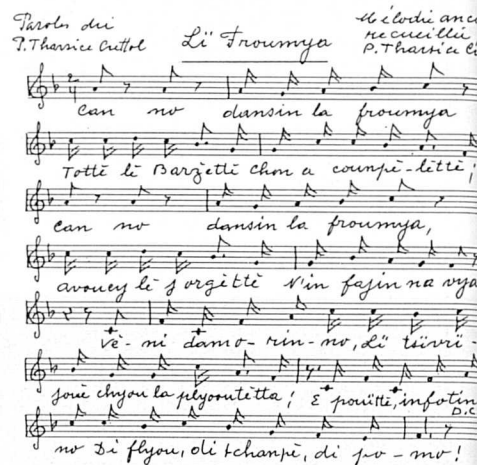 Paroles dri
P. Tharsice Crettol
Lï Froumya
Mélodie anc
recueillie
P. Tharsice C
Can no dansin la froumya
Tottè lè Barzettè chon a counpè-lettè;
Can no dansin la froumya,
avoucy lè sorgèttè N'in fajin na vya
Vè-ni damo-rin-no, Lï tsïvri-
jouè chyou la plyooutètta; È pouïttè, infotin
D.C
no Di flyou, di tchanpè, di po-mo!